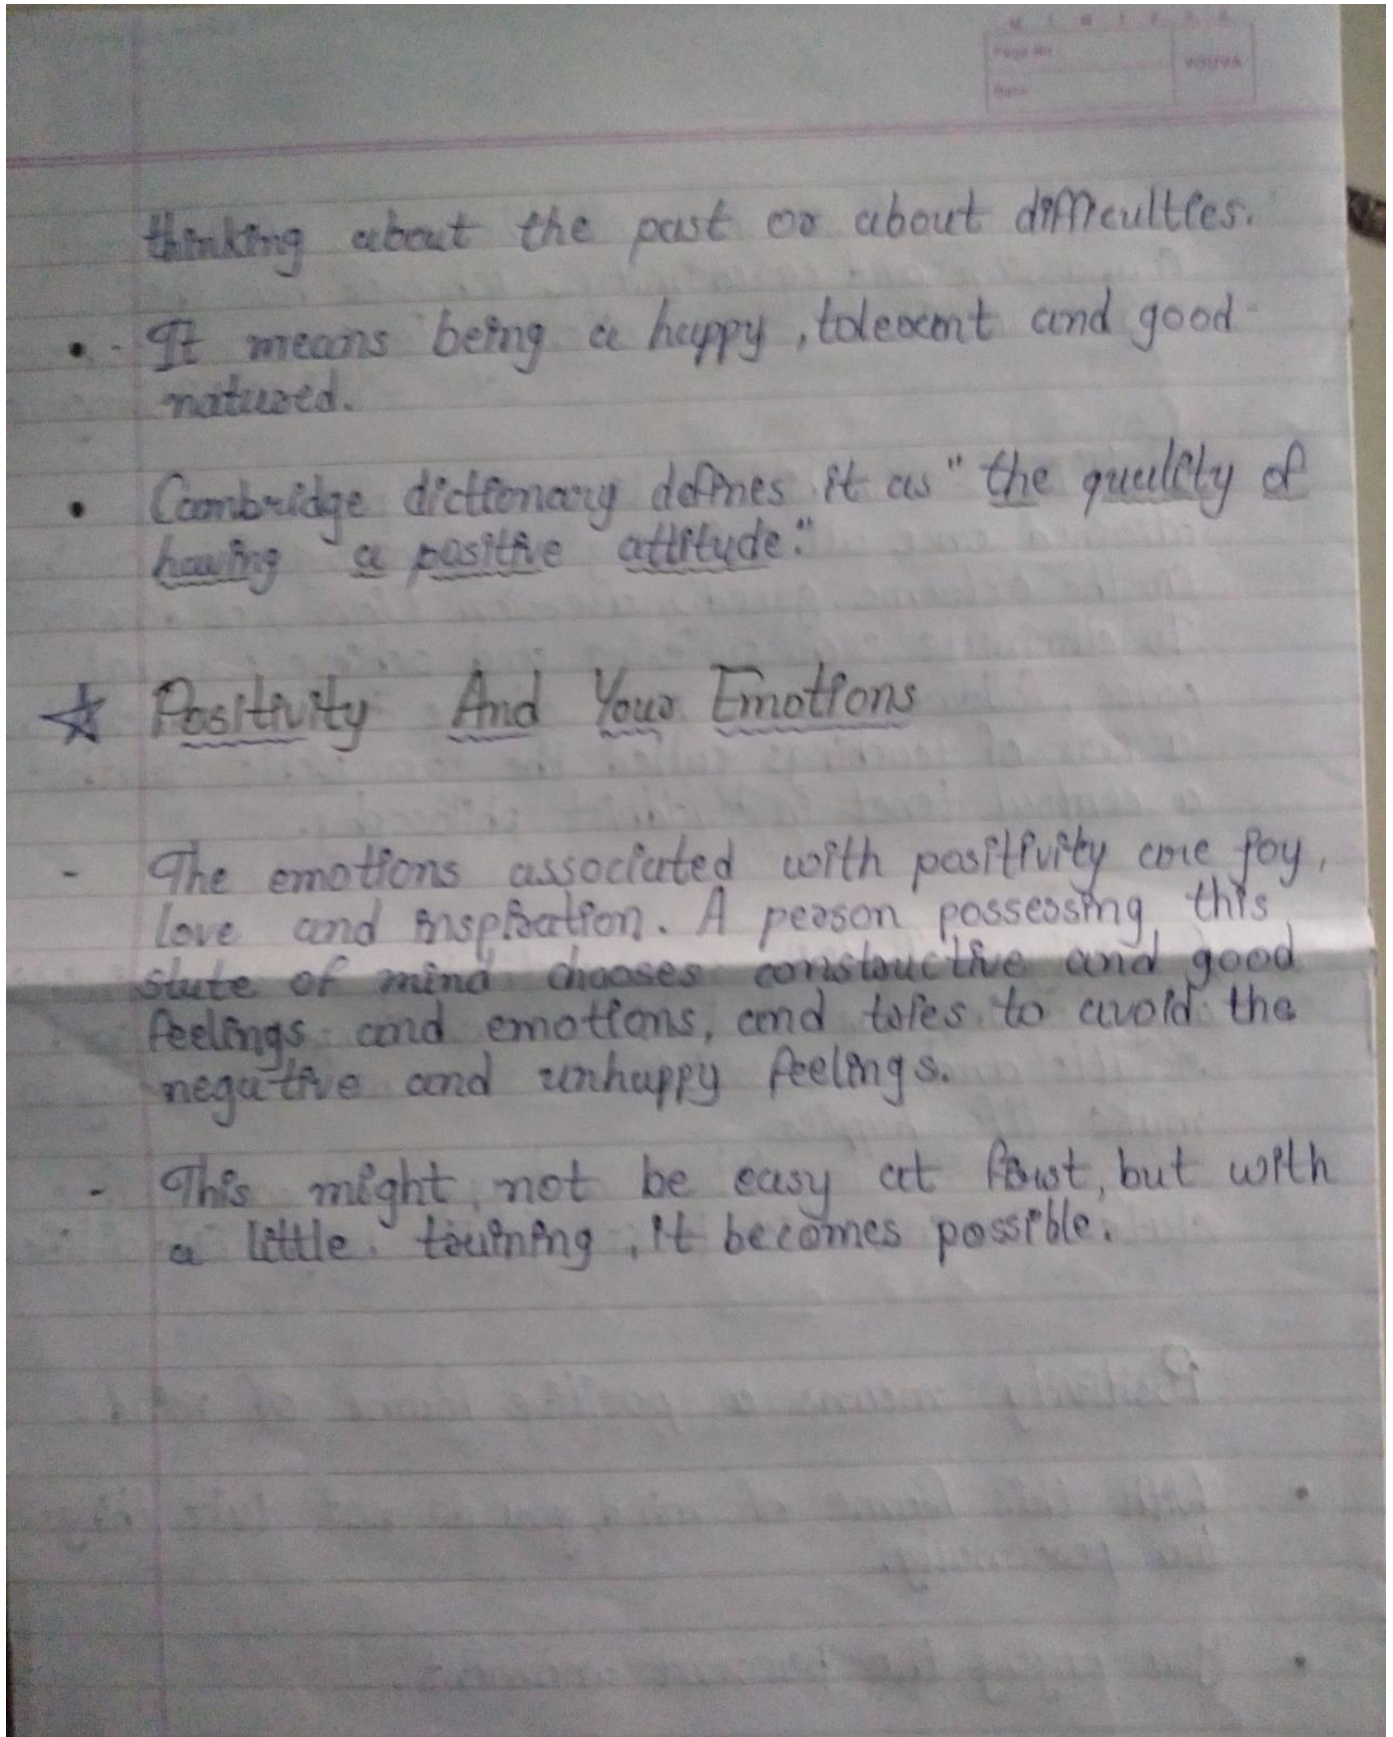 Page No.
Date
YOUVA
thinking about the past or about difficulties.
• - It means being a happy, tolerant and good-
natured.
• Cambridge dictionary defines it as "the quality of
having a positive attitude."
☆ Positivity And Your Emotions
- The emotions associated with positivity are joy,
love and inspiration. A person possessing this
state of mind chooses constructive and good
feelings and emotions, and tries to avoid the
negative and unhappy feelings.
- This might not be easy at first, but with
a little training, it becomes possible.